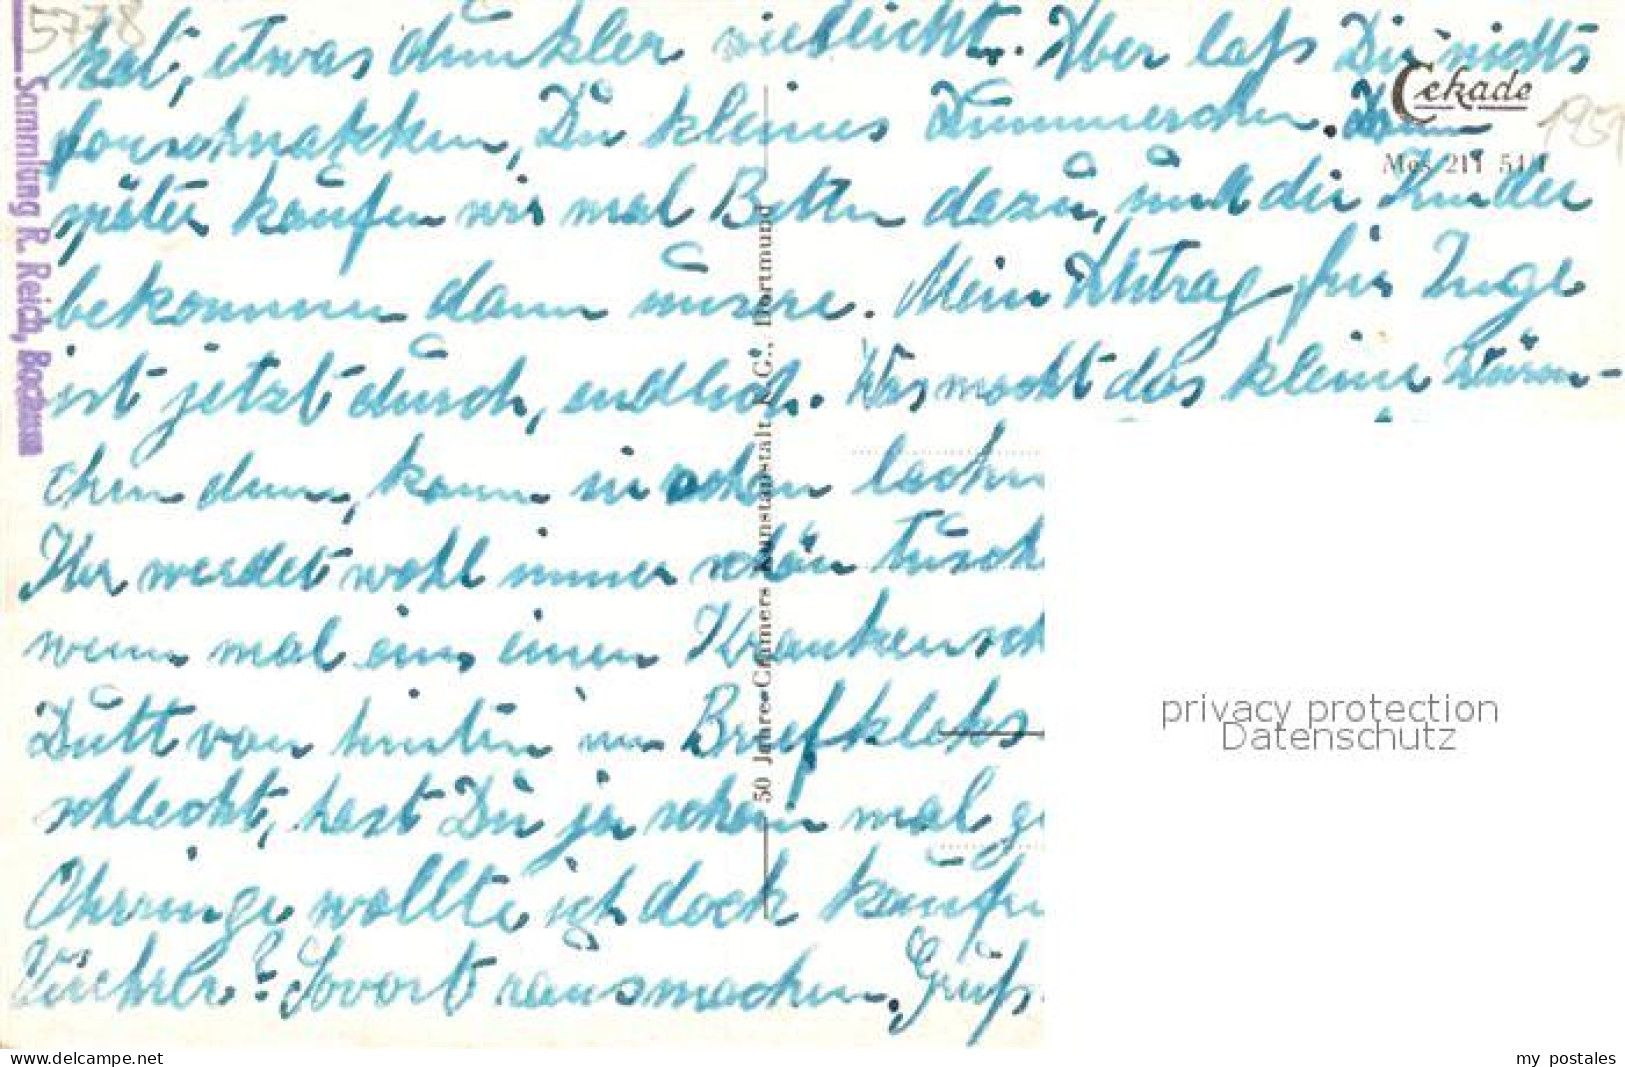 5778
hat, etwas dunkler vielleicht. Aber laß Dir nichts
vorschnakken, Du kleines Dummerchen. Dann
später kaufen wir mal Betten dazu, und die Kinder
bekommen dann unsere. Mein Antrag für Inge
ist jetzt durch, endlich. Was macht das kleine Würm-
chen denn, kann sie schon lachen
Ihr werdet wohl immer schön tusch
wenn mal eins einen Krankensch
Dutt von hinten im Briefkleks
schlecht, hast Du ja schon mal ge
Ohrringe wollte ich doch kaufen
Sovort rausmachen. Gruß
Cekade
Mos 211 51/1
1959
Sammlung R. Reich, Bochum
50 Jahre Cramers Kunstanstalt K.G., Dortmund
privacy protection
Datenschutz
www.delcampe.net
my_postales